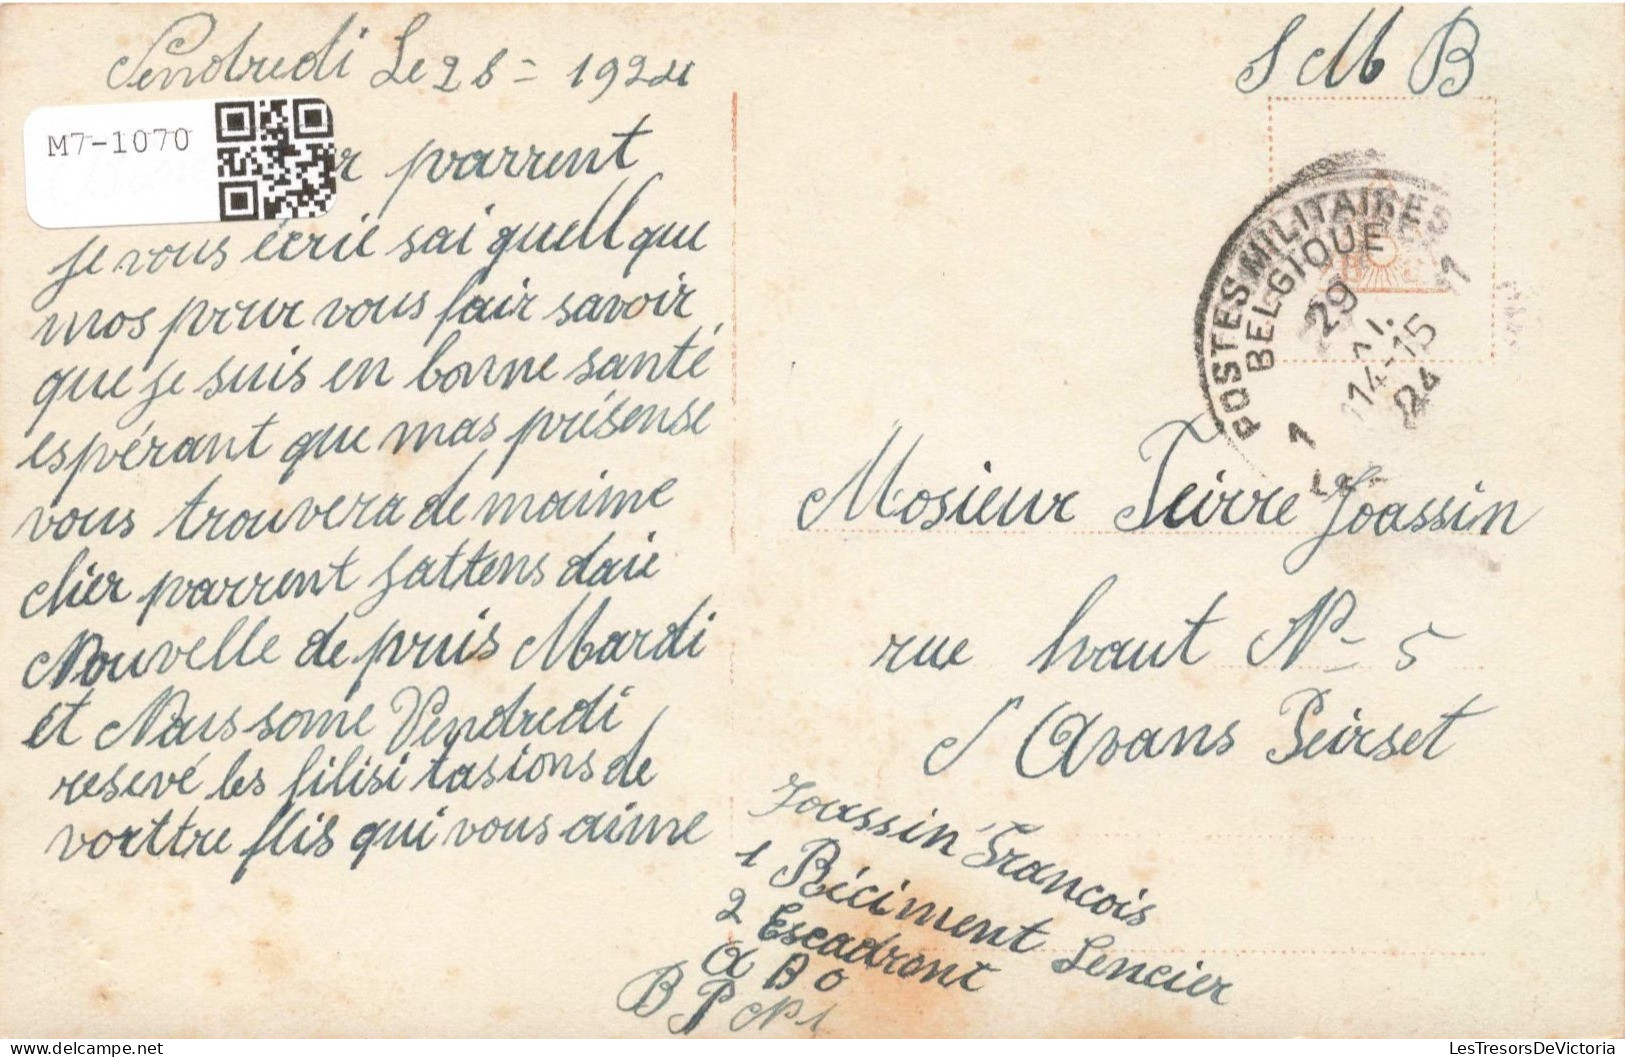 Vendredi Le 28 = 1924
M7-1070
parrent
je vous écrie sai quell que
mos pour vous fair savoir
que je suis en bonne santé
espérant que mas présense
vous trouvera de maime
cher parrent jattens daie
Nouvelle de puis Mardi
et Nous some Vendredi
resevé les filisi tasions de
vorttre flis qui vous aime
S M B
POSTES MILITAIRES
BELGIQUE
29
14-15
24
1 1
Mosieur Peirre Joassin
rue haut No 5
S Avans Peirset
Joassin Francois
1 Réciment Lencier
2 Escadront
A B O
B P No 1
LesTresorsDeVictoria.com